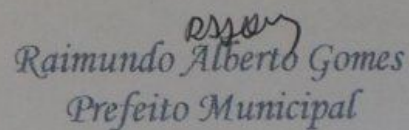 Raimundo Alberto Gomes
Prefeito Municipal